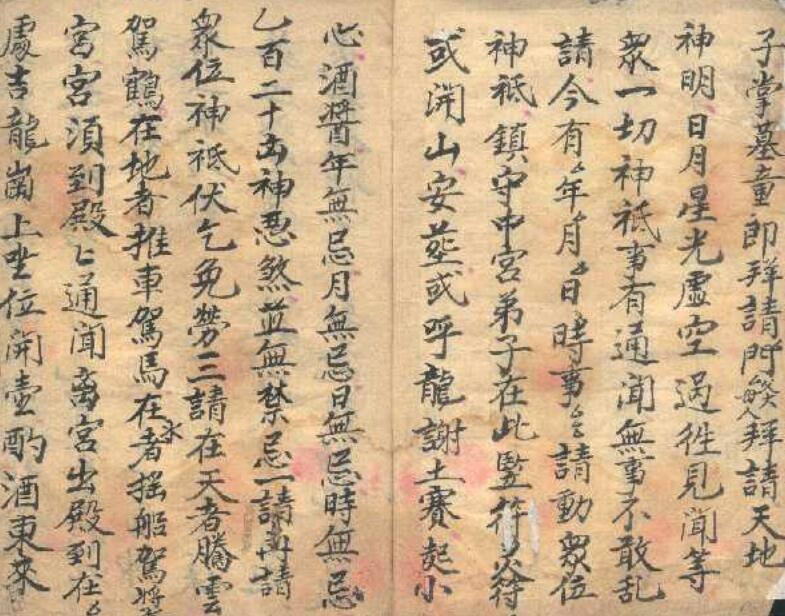 子掌墓童即拜請門燄人拜請天地
神明日月星光虛空過徃見聞等
衆一切神祇事有通聞無事不敢乱
請今有年月日時事請動衆位
神祇鎮守中宮弟子在此竪符炎符
或開山安葬或呼龍謝土賽起小
心酒醬年無忌月無忌日無忌時無忌
乙百二十凶神悪煞並無禁忌一請再請
衆位神祇伏乞免勞三請在天者騰雲
駕鶴在地者推車駕馬在水者摇船駕漿
宮宮須到殿上通聞离宮出殿到在
處吉龍崗上坐位開壺酌酒東來